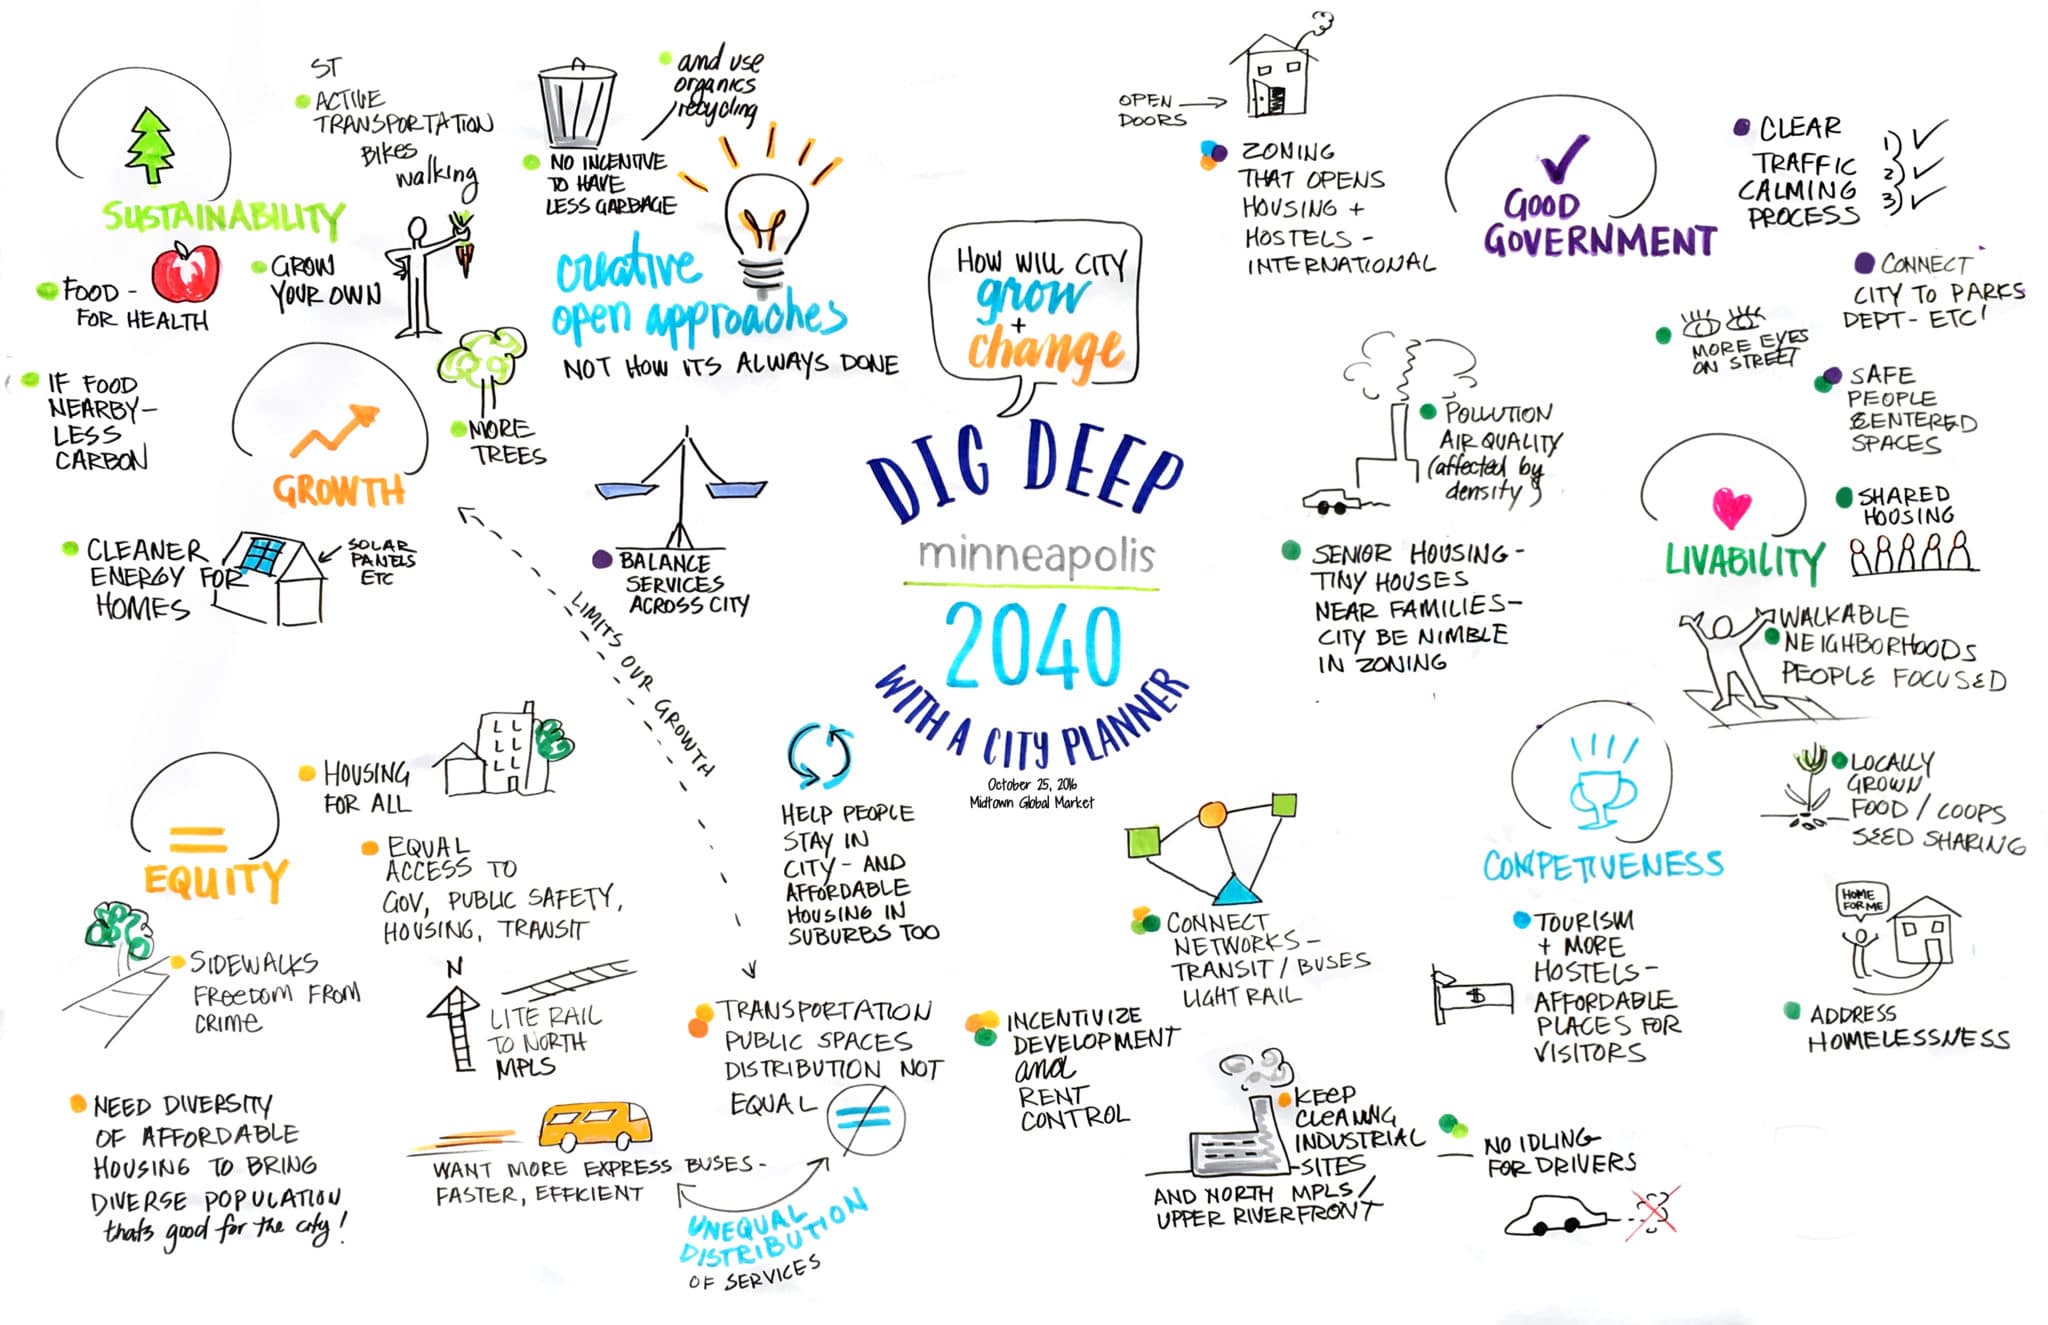 ST
ACTIVE
TRANSPORTATION
BIKES
walking
SUSTAINABILITY
FOOD -
FOR HEALTH
GROW
YOUR OWN
IF FOOD
NEARBY -
LESS
CARBON
GROWTH
MORE
TREES
CLEANER
ENERGY FOR
HOMES
SOLAR
PANELS
ETC
and use
organics
recycling
NO INCENTIVE
TO HAVE
LESS GARBAGE
creative
open approaches
NOT HOW ITS ALWAYS DONE
BALANCE
SERVICES
ACROSS CITY
LIMITS OUR GROWTH
HOW WILL CITY
grow
+
change
DIG DEEP
minneapolis
2040
WITH A CITY PLANNER
October 25, 2016
Midtown Global Market
OPEN
DOORS
ZONING
THAT OPENS
HOUSING +
HOSTELS -
INTERNATIONAL
GOOD
GOVERNMENT
CLEAR
TRAFFIC
CALMING
PROCESS
1)
2)
3)
CONNECT
CITY TO PARKS
DEPT - ETC!
MORE EYES
ON STREET
SAFE
PEOPLE
CENTERED
SPACES
POLLUTION
AIR QUALITY
(affected by
density)
SENIOR HOUSING -
TINY HOUSES
NEAR FAMILIES -
CITY BE NIMBLE
IN ZONING
LIVABILITY
SHARED
HOUSING
WALKABLE
NEIGHBORHOODS
PEOPLE FOCUSED
LOCALLY
GROWN
FOOD / COOPS
SEED SHARING
HOME
FOR ME
ADDRESS
HOMELESSNESS
COMPETIVENESS
TOURISM
+ MORE
HOSTELS -
AFFORDABLE
PLACES FOR
VISITORS
$
EQUITY
HOUSING
FOR ALL
EQUAL
ACCESS TO
GOV, PUBLIC SAFETY,
HOUSING, TRANSIT
SIDEWALKS
FREEDOM FROM
CRIME
N
LITE RAIL
TO NORTH
MPLS
NEED DIVERSITY
OF AFFORDABLE
HOUSING TO BRING
DIVERSE POPULATION
thats good for the city!
WANT MORE EXPRESS BUSES -
FASTER, EFFICIENT
HELP PEOPLE
STAY IN
CITY - AND
AFFORDABLE
HOUSING IN
SUBURBS TOO
TRANSPORTATION
PUBLIC SPACES
DISTRIBUTION NOT
EQUAL
UNEQUAL
DISTRIBUTION
OF SERVICES
CONNECT
NETWORKS -
TRANSIT / BUSES
LIGHT RAIL
INCENTIVIZE
DEVELOPMENT
and
RENT
CONTROL
KEEP
CLEANING
INDUSTRIAL
SITES
AND NORTH MPLS /
UPPER RIVERFRONT
NO IDLING
FOR DRIVERS